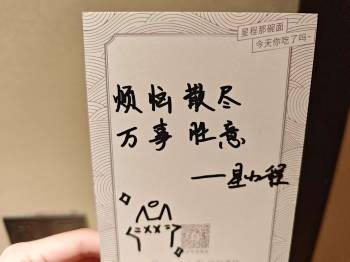 星程那碗面
今天你吃了吗~
烦恼散尽
万事胜意
——星小程